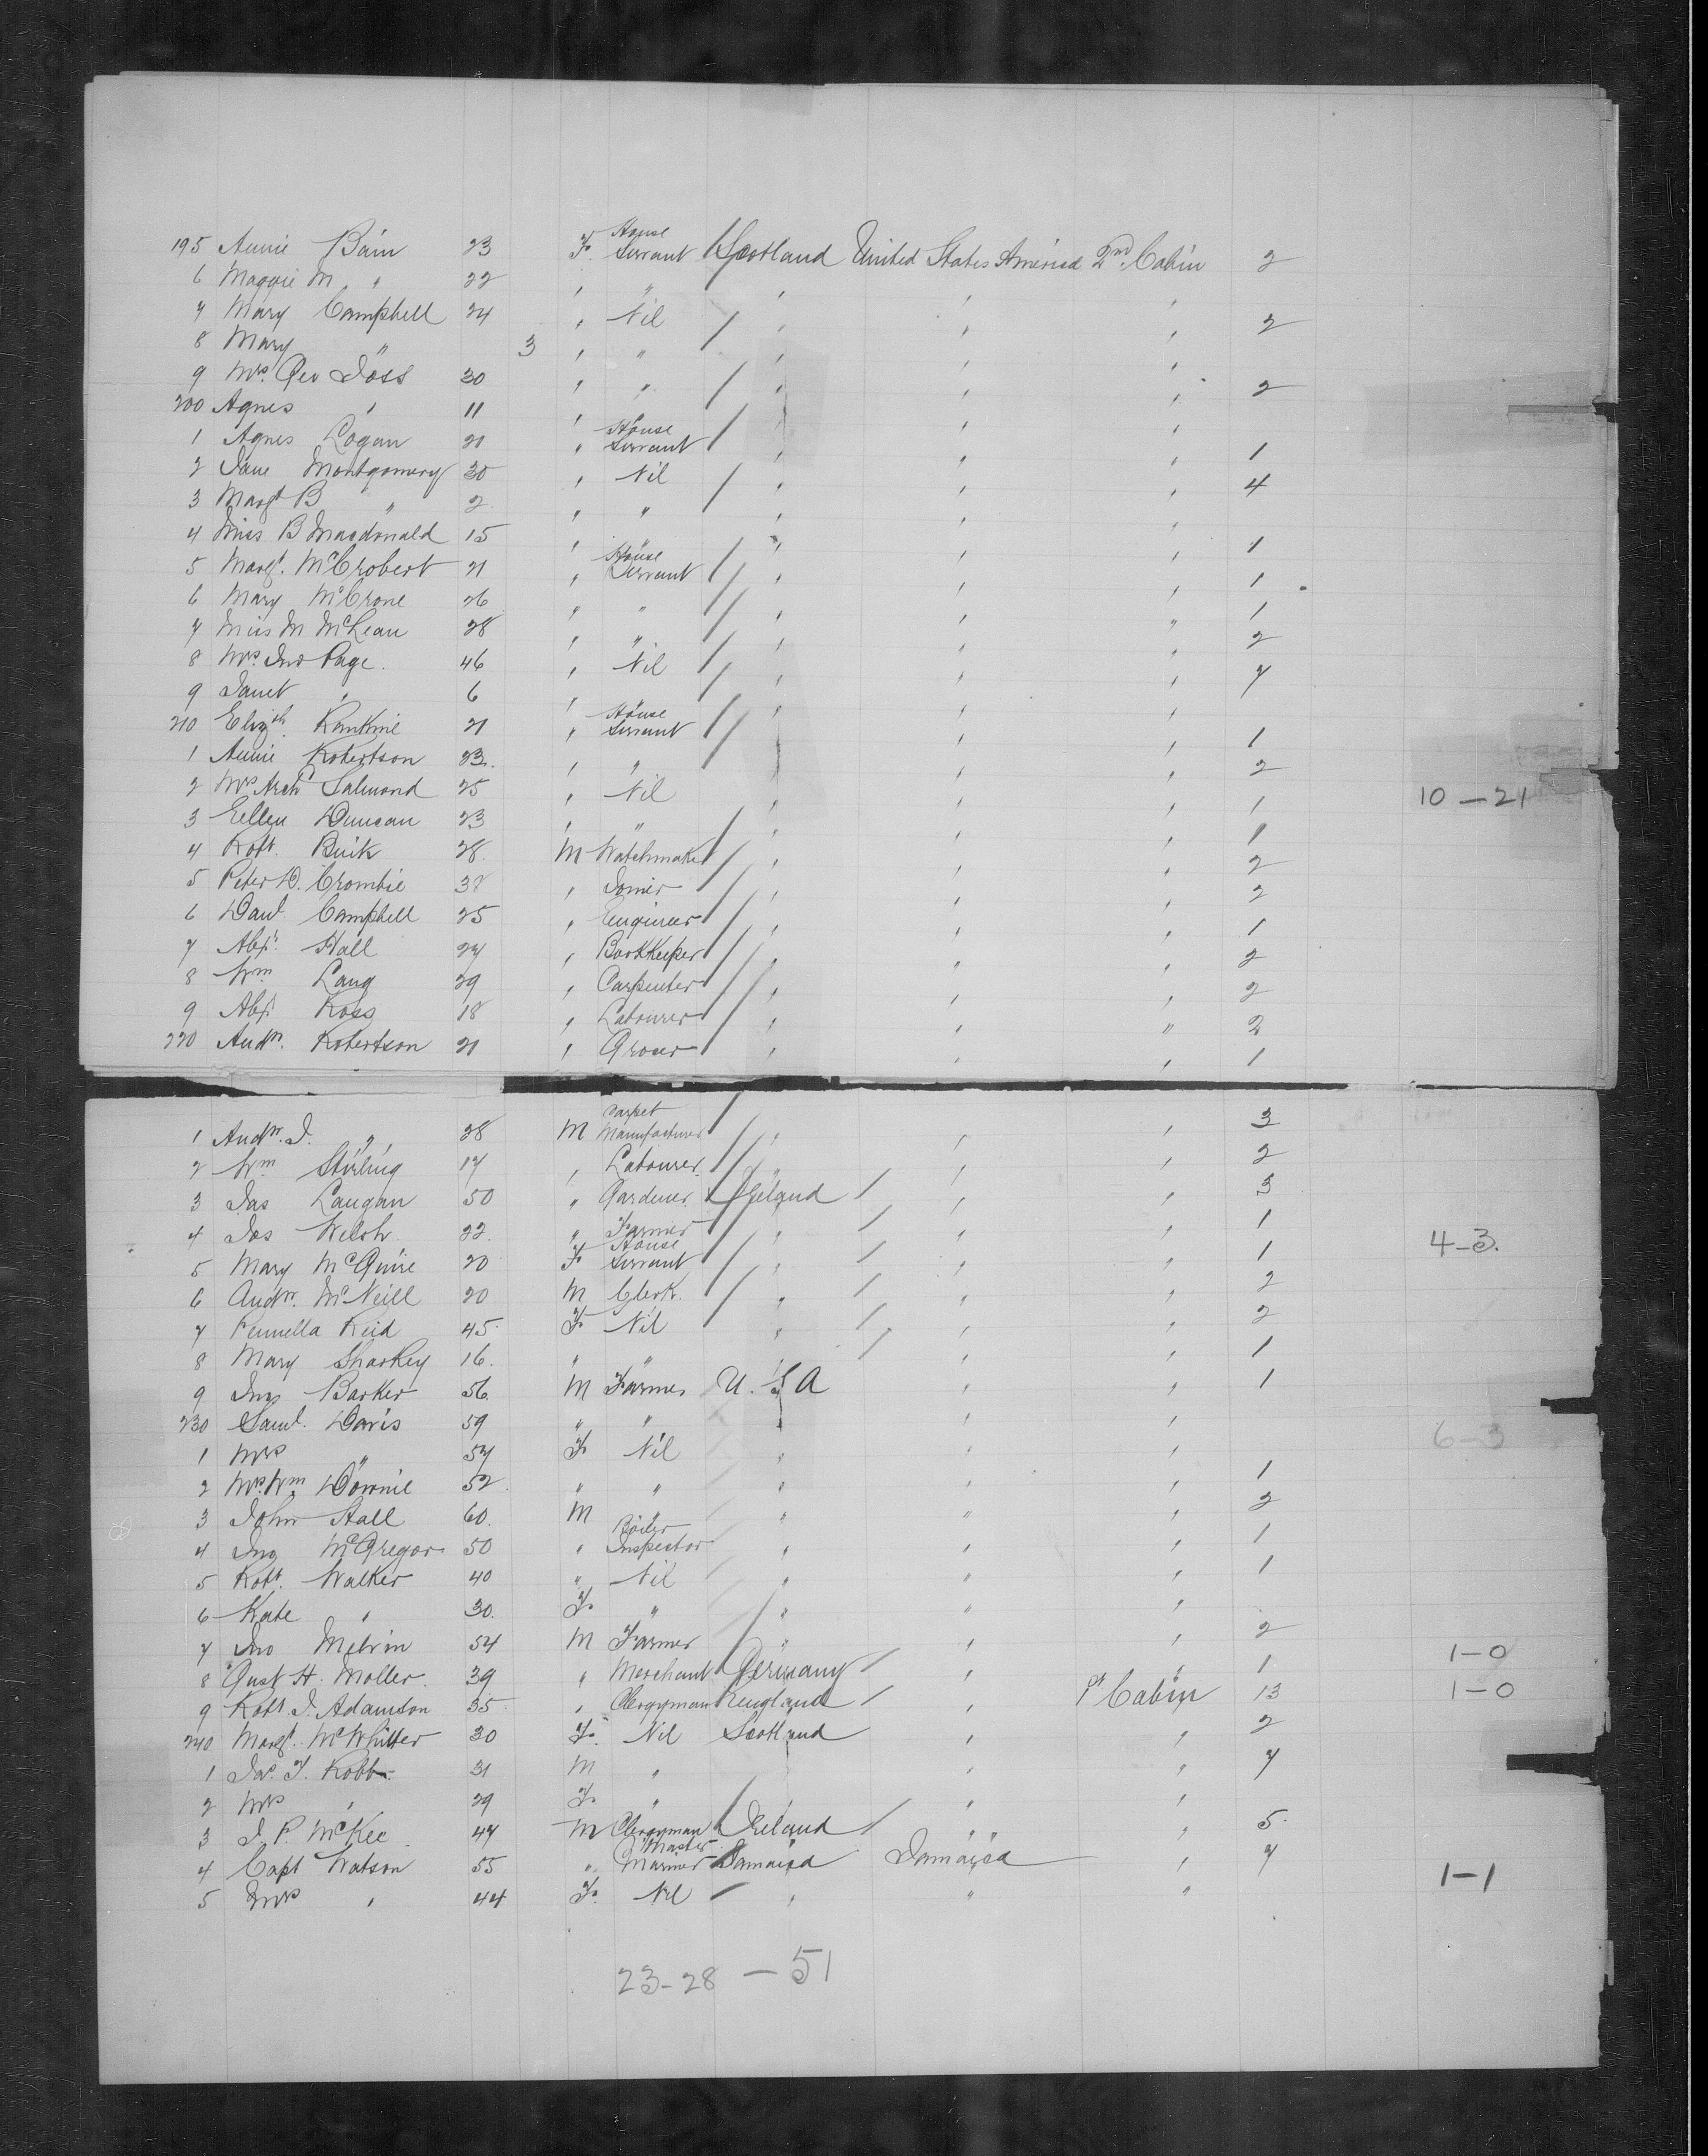 195 Annie Bain 23 F. House Servant Scotland United States America 2nd Cabin 2
6 Maggie M " 22 " " " " "
7 Mary Campbell 24 " Nil " " " 2
8 Mary " 3 " " " " "
9 Mrs. Geo Doss 30 " " " " " 2
200 Agnes " 11 " " " " "
1 Agnes Logan 21 " House Servant " " " 1
2 Jane Montgomery 30 " Nil " " " 4
3 Margt B " 2 " " " " "
4 Miss B Macdonald 15 " " " " " 1
5 Margt. McCrobert 21 " House Servant " " " 1
6 Mary McCrone 26 " " " " " 1
7 Miss M McLean 28 " " " " " 2
8 Mrs. Jno Page. 46 " Nil " " " 7
9 Janet " 6 " " " "
210 Elizth. Rankine 21 " House Servant " " " 1
1 Annie Robertson 23. " " " " " 2
2 Mrs Archd Salmond 25 " Nil " " " 1 10-21
3 Ellen Duncan 23 " " " " " 1
4 Robt. Buik 28. M Watchmaker " " " 2
5 Peter D. Crombie 38 " Joiner " " " 2
6 Danl. Campbell 25 " Engineer " " " 1
7 Alexr. Hall 27 " Bookkeeper " " " 2
8 Wm Lang 29 " Carpenter " " " 2
9 Alexr Ross 18 " Labourer " " " 2
220 Andw. Robertson 21 " Grocer " " " 1
1 Andw. J. " 28 M Carpet Manufacturer " " " 3
2 Wm Stirling 17 " Labourer. " " " 2
3 Jas Langan 50 " Gardener Ireland " " 3
4 Jos Welsh 22. " Farmer " " " 1 4-3.
5 Mary McGuire 20 F House Servant " " " 1
6 Andw. McNeill 20 M Clerk. " " " 2
7 Pennella Reid 45. F Nil " " " 2
8 Mary Sharkey 16. " " " " 1
9 Jno Barker 56. M Farmer U.S.A " " 1
230 Saml. Davis 59 " " " " "
1 Mrs " 57 F Nil " " " 6-3
2 Mrs. Wm Downie 52. " " " " " 1
3 John Hall 60. M " " " " 2
4 Jno McGregor 50 " Boiler Inspector " " " 1
5 Robt. Walker 40 " Nil " " " 1
6 Kate " 30. F. " " " "
7 Jno Melvin 54 M Farmer " " " 2
8 Gust H. Moller. 39 " Merchant Germany " " 1 1-0
9 Robt. J. Adamson 35 " Clergyman England " 1st Cabin 13 1-0
240 Margt. McWhitter 30 F. Nil Scotland " " 2
1 Jas. F. Robb 31 M " " " " 7
2 Mrs " 29 F. " " " "
3 J. P. McKee 47 M Clergyman Ireland " " 5.
4 Capt Watson 55 " Master Mariner Jamaica Jamaica " 7 1-1
5 Mrs " 44 F. Nil " " "
23-28 - 51